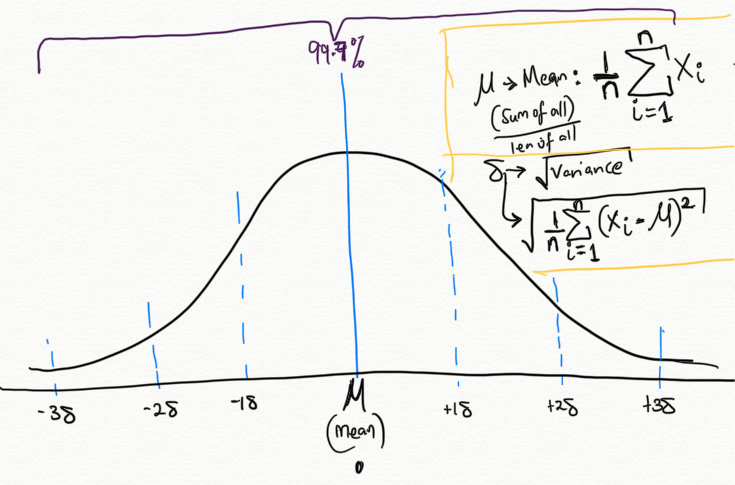 99.7%
μ → Mean: 1/n Σ_{i=1}^{n} Xi
(Sum of all)
len of all
δ → √Variance
→ √(1/n Σ_{i=1}^{n} (Xi - μ)²)
-3δ -2δ -1δ μ +1δ +2δ +3δ
(Mean)
0